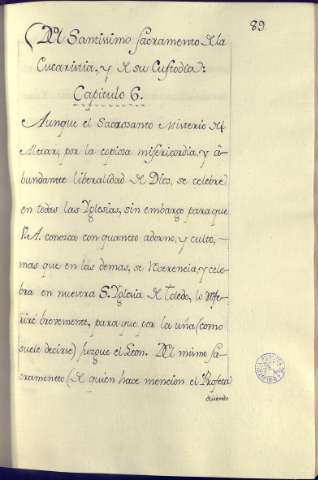 89
Del Santissimo Sacramento de la
Eucaristia, y de su Custodia.
Capitulo 6.
Aunque el Sacrosanto Misterio del
Altar, por la copiosa misericordia, y â-
bundante liberalidad de Dios, se celebre
en todas las Yglesias, sin embargo para que
V. A. conozca con quanto adorno, y culto,
mas que en las demas, se Reverencia, y cele-
bra en nuestra S. Yglesia de Toledo, lo refe-
riré brevemente, para que por la uña (como
suele decirse) juzgue el Leon. Del mismo Sa-
cramento (de quien hace mencion el Profeta
diciendo